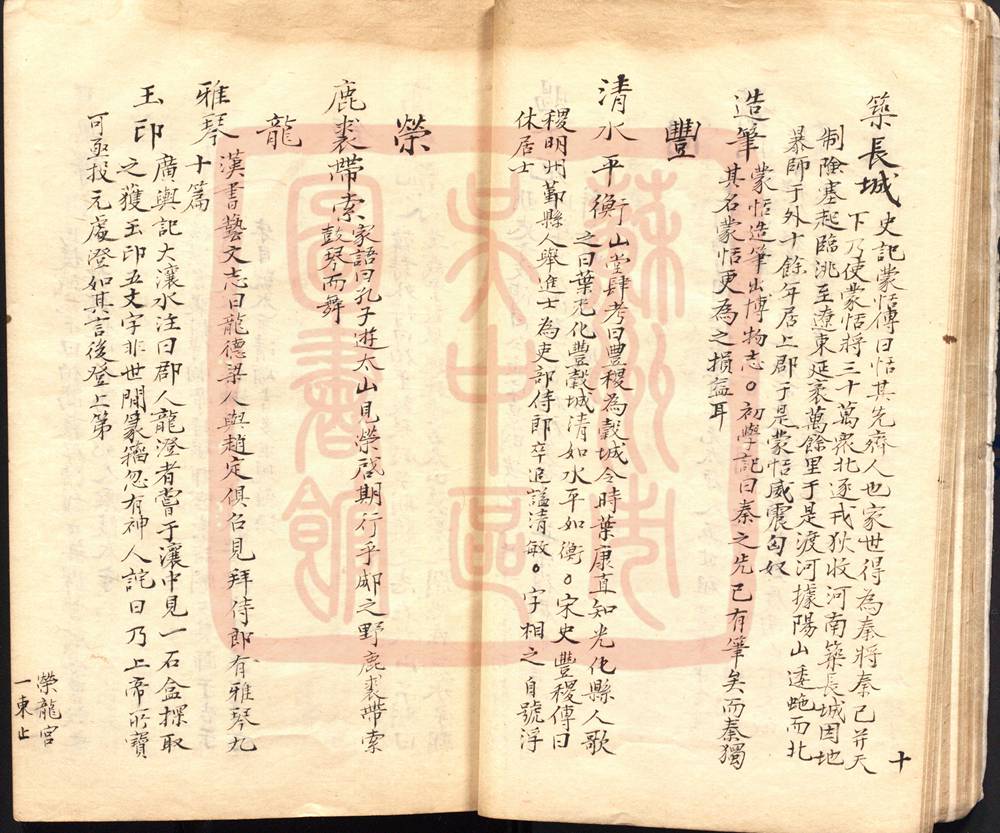 築長城 史記蒙恬傳曰恬其先齊人也家世得為秦將秦已并天
下乃使蒙恬將三十萬衆北逐戎狄收河南築長城因地
制險塞起臨洮至遼東延袤萬餘里于是渡河據陽山逶虵而北
暴師于外十餘年居上郡于是蒙恬威震匈奴
造筆 蒙恬造筆出博物志○初學記曰秦之先已有筆矣而秦獨
其名蒙恬更為之損益耳
豐
清水平衡 山堂肆考曰豐稷為穀城令時葉康直知光化縣人歌
之曰葉光化豐穀城清如水平如衡○宋史豐稷傳曰
稷明州鄞縣人舉進士為吏部侍郎卒追諡清敏○字相之自號浮
休居士
榮
鹿裘帶索 家語曰孔子遊太山見榮啓期行乎郕之野鹿裘帶索
鼓琴而舞
龍
雅琴 漢書藝文志曰龍德梁人與趙定俱召見拜侍郎有雅琴九
十篇
玉印 廣輿記大瀼水注曰郡人龍澄者嘗于瀼中見一石盒探取
之獲玉印五文字非世間篆籀忽有神人詫曰乃上帝所寶
可亟投元處澄如其言後登上第
十
榮龍宮
一東止
蘇州市
吳中區
圖書館